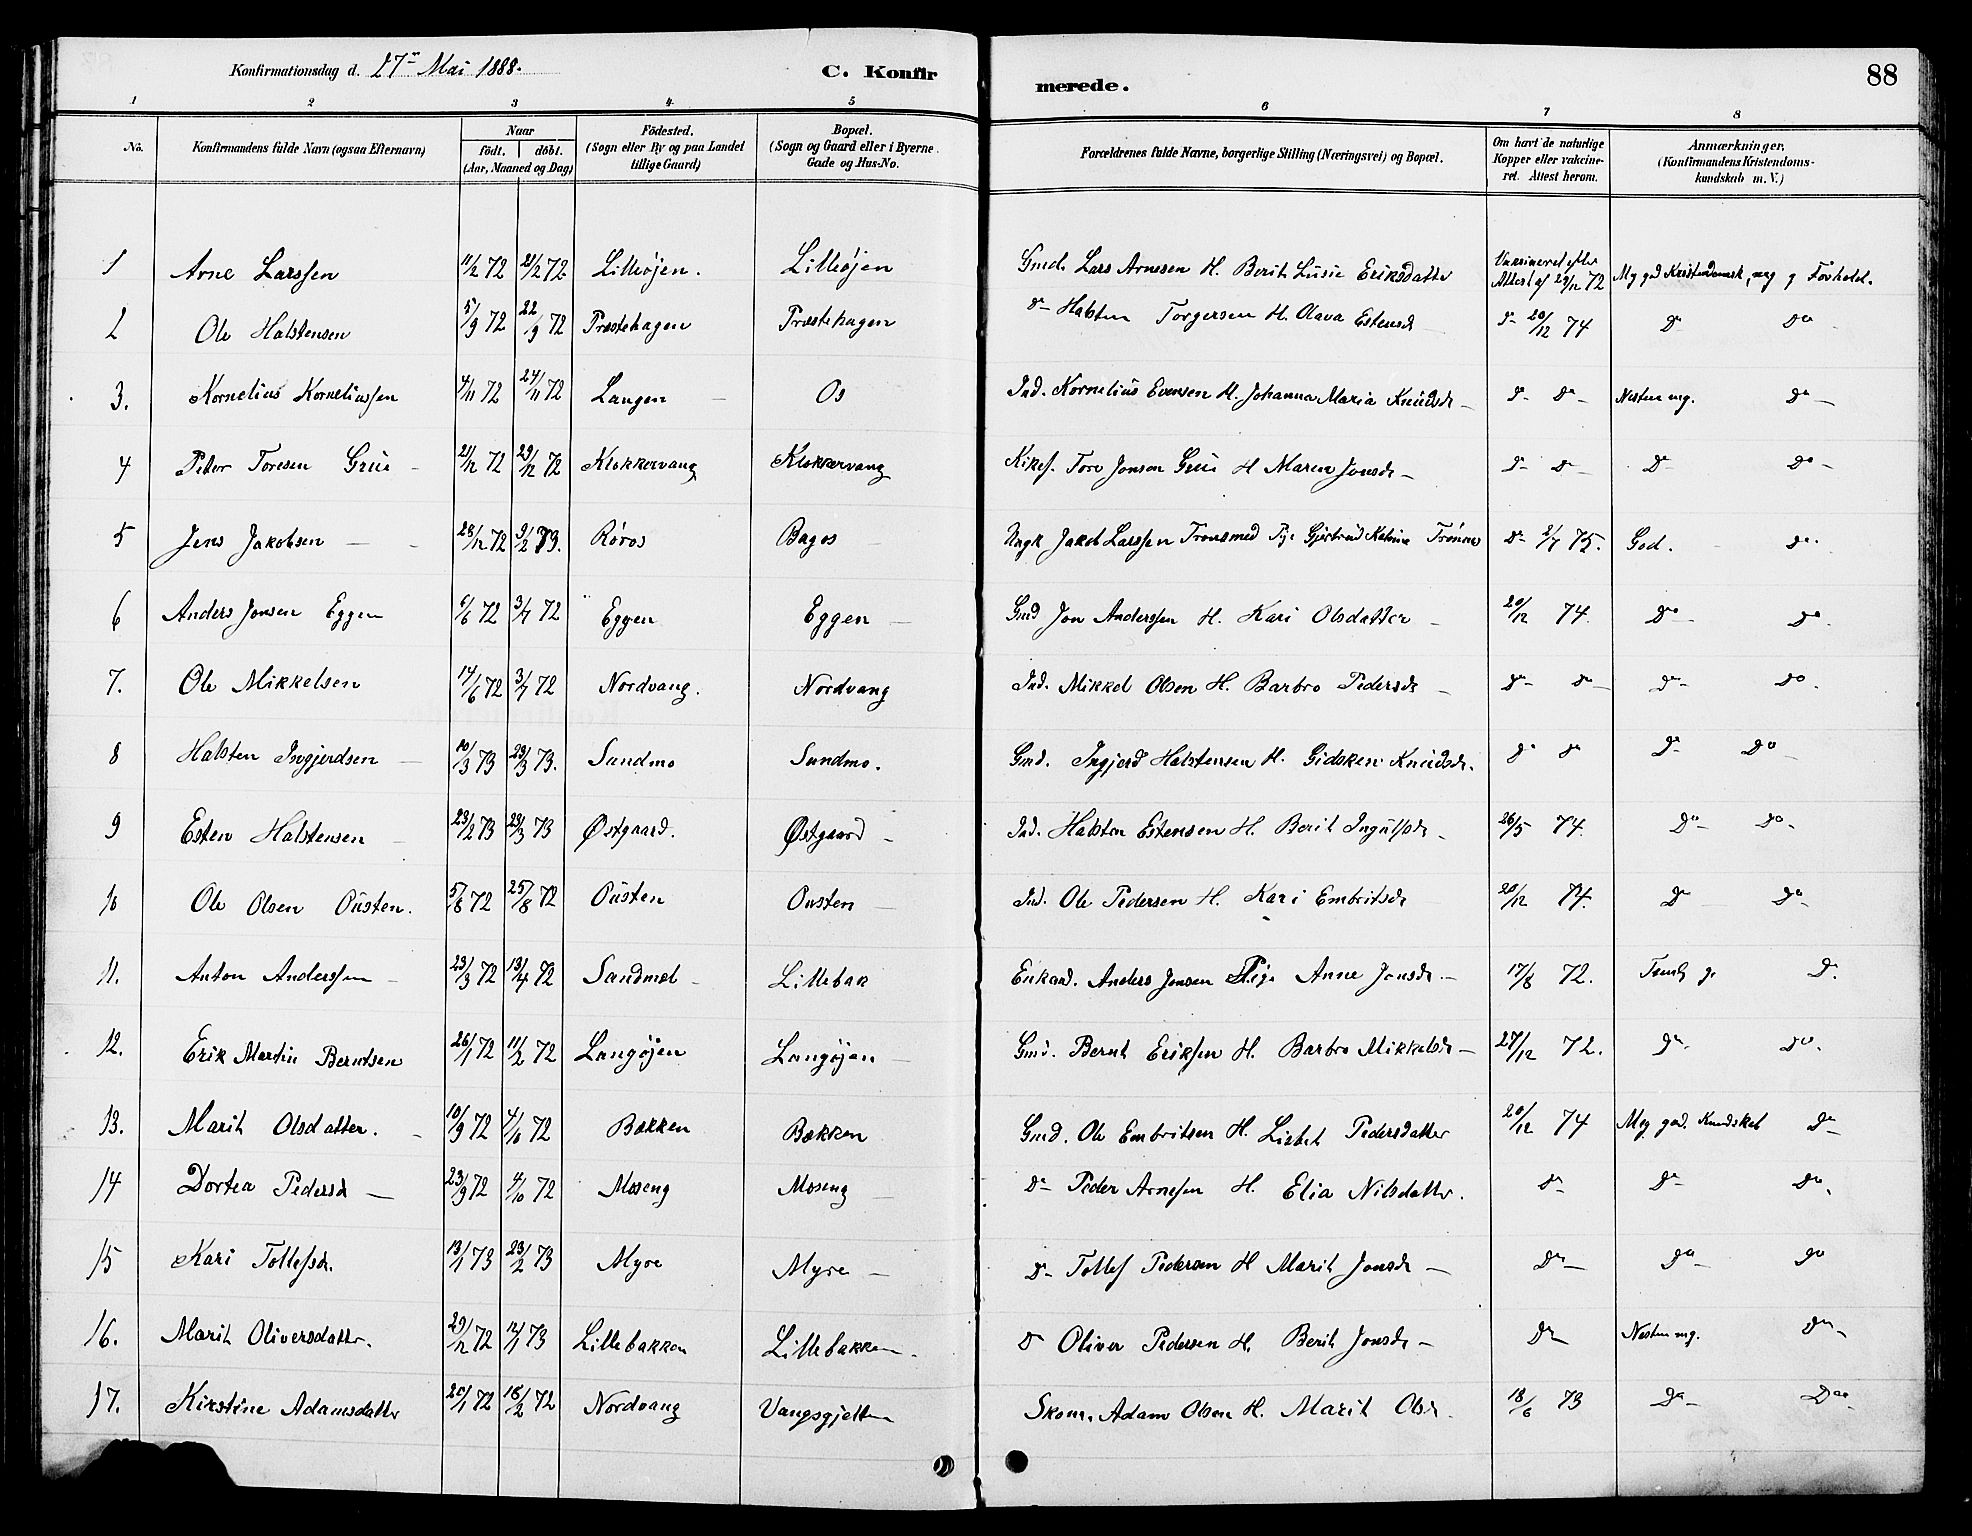 Konfirmationsdag d. 27de Mai 1888.
C. Konfirmerede.
88
1 2 3 4 5 6 7 8
No. Konfirmandens fulde Navn (ogsaa Efternavn) Naar født. døbt. (Aar, Maaned og Dag) Födested. (Sogn eller By og paa Landet tillige Gaard) Bopæl. (Sogn og Gaard eller i Byerne Gade og Hus-No. Forældrenes fulde Navne, borgerlige Stilling (Næringsvei) og Bopæl. Om havt de naturlige Kopper eller vakcineret. Attest herom. Anmærkninger. (Konfirmandens Kristendomskundskab m. V.)
1 Arne Larssen 11/2 72 21/2 72 Lilleøjen. Lilleøjen Gmd. Lars Arnesen H. Berit Lusie Eriksdatter Vaksineret efter Attest af 29/12 72 Mg god Kristendomsk, mg g Forhold.
2 Ole Halstensen 5/9 72 22/9 72 Præstehagen Præstehagen Do Halsten Torgersen H. Olava Estensd Do 20/12 74 Do Do
3. Kornelius Korneliussen 4/11 72 24/11 72 Langen Os Ind. Kornelius Evensen H. Johanna Maria Knudsdr Do Do Nesten mg. Do
4 Peder Toresen Grue 21/12 72 29/12 72 Klokkervang Klokkervang Kikes. Tore Jonsen Grue H Maren Jonsdr Do Do Do Do
5 Jens Jakobsen 28/12 72 9/2 73. Røros Bagos Ungk Jakob Larssen Tronsmed Pge Gjertrud Katrine Trønnes Do 2/7 75. God. Do
6 Anders Jonsen Eggen 6/6 72 3/7 72 Eggen Eggen Gmd Jon Anderssen H. Kari Olsdatter 20/12 74. Do Do
7. Ole Mikkelsen 14/6 72 3/7 72 Nordvang. Nordvang Ind. Mikkel Olsen H. Barbro Pedersdr Do Do Do Do
8 Halsten Ingjerdsen 10/3 73 23/3 73. Sundmo Sundmo. Gmd. Ingjerd Halstensen H. Gidsken Knudsdr. Do Do Do Do
9 Esten Halstensen 23/2 73 23/3 73 Østgaard. Østgaard Ind. Halsten Estensen H Berit Ingulfsdr 26/5 74. Do Do
10 Ole Olsen Ousten. 5/8 72 25/8 72 Ousten Ousten Ind. Ole Pedersen H. Kari Embritsdr 20/12 74. Do Do
11. Anton Anderssen 23/3 72 13/4 72 Sandmæl Lillebak Enkem. Anders Jonsen Pige Anne Jonsdr. 17/8 72. Teml g Do
12. Erik Martin Berntsen 26/1 72 11/2 72 Langøjen Langøjen Gmd. Bernt Eriksen H. Barbro Mikkelsdr 27/12 72. Do Do
13. Marit Olsdatter. 10/9 72 4/10 72 Bækken Bækken Gmd. Ole Embritsen H. Lisbet Pedersdatter 20/12 74 Mg god. Kundskab Do
14 Dortea Pedersd 23/9 72 4/10 72 Moseng Moseng Do Peder Arnesen H. Elia Nilsdatter. Do Do Do
15 Kari Tollefsdr. 13/1 73 23/2 73 Myre Myre Do Tollef Pedersen H Marit Jonsdr Do Do Do
16. Marit Oliversdatter. 29/12 72 12/1 73 Lillebakken Lillebakken. Do Oliver Pedersen H. Berit Jonsdr Do Nesten mg. Do
17. Kirstine Adamsdatter 20/1 72 18/2 72 Nordvang Vangsgjelten Skom. Adam Olsen H. Marit Olsdr. 18/6 73 Do Do